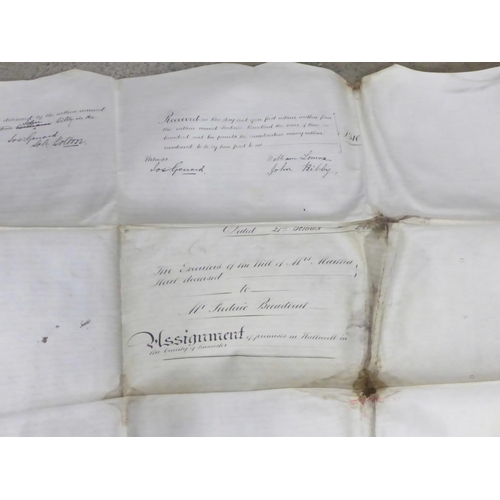 of the within named
in the
Jos Gerrard
Received on the day and year first within written from
the within named Frederic Broadbent the sum of three
hundred and ten pounds the consideration money within
mentioned to be by him paid to us
£310
Witness
Jos Gerrard
William Lomax
John Kibby
Dated 21st October
The Executors of the Will of Mrs. Martha
Hart deceased
to
Mr. Frederic Broadbent
Assignment of premises in Halliwell in
the County of Lancaster